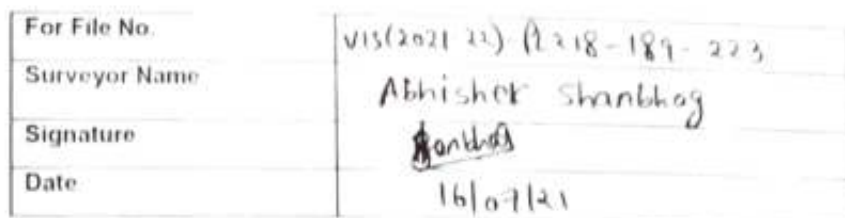 For File No. VIS(2021 22)-PL218-189-223
Surveyor Name Abhishek Shanbhag
Signature
Date 16/07/21